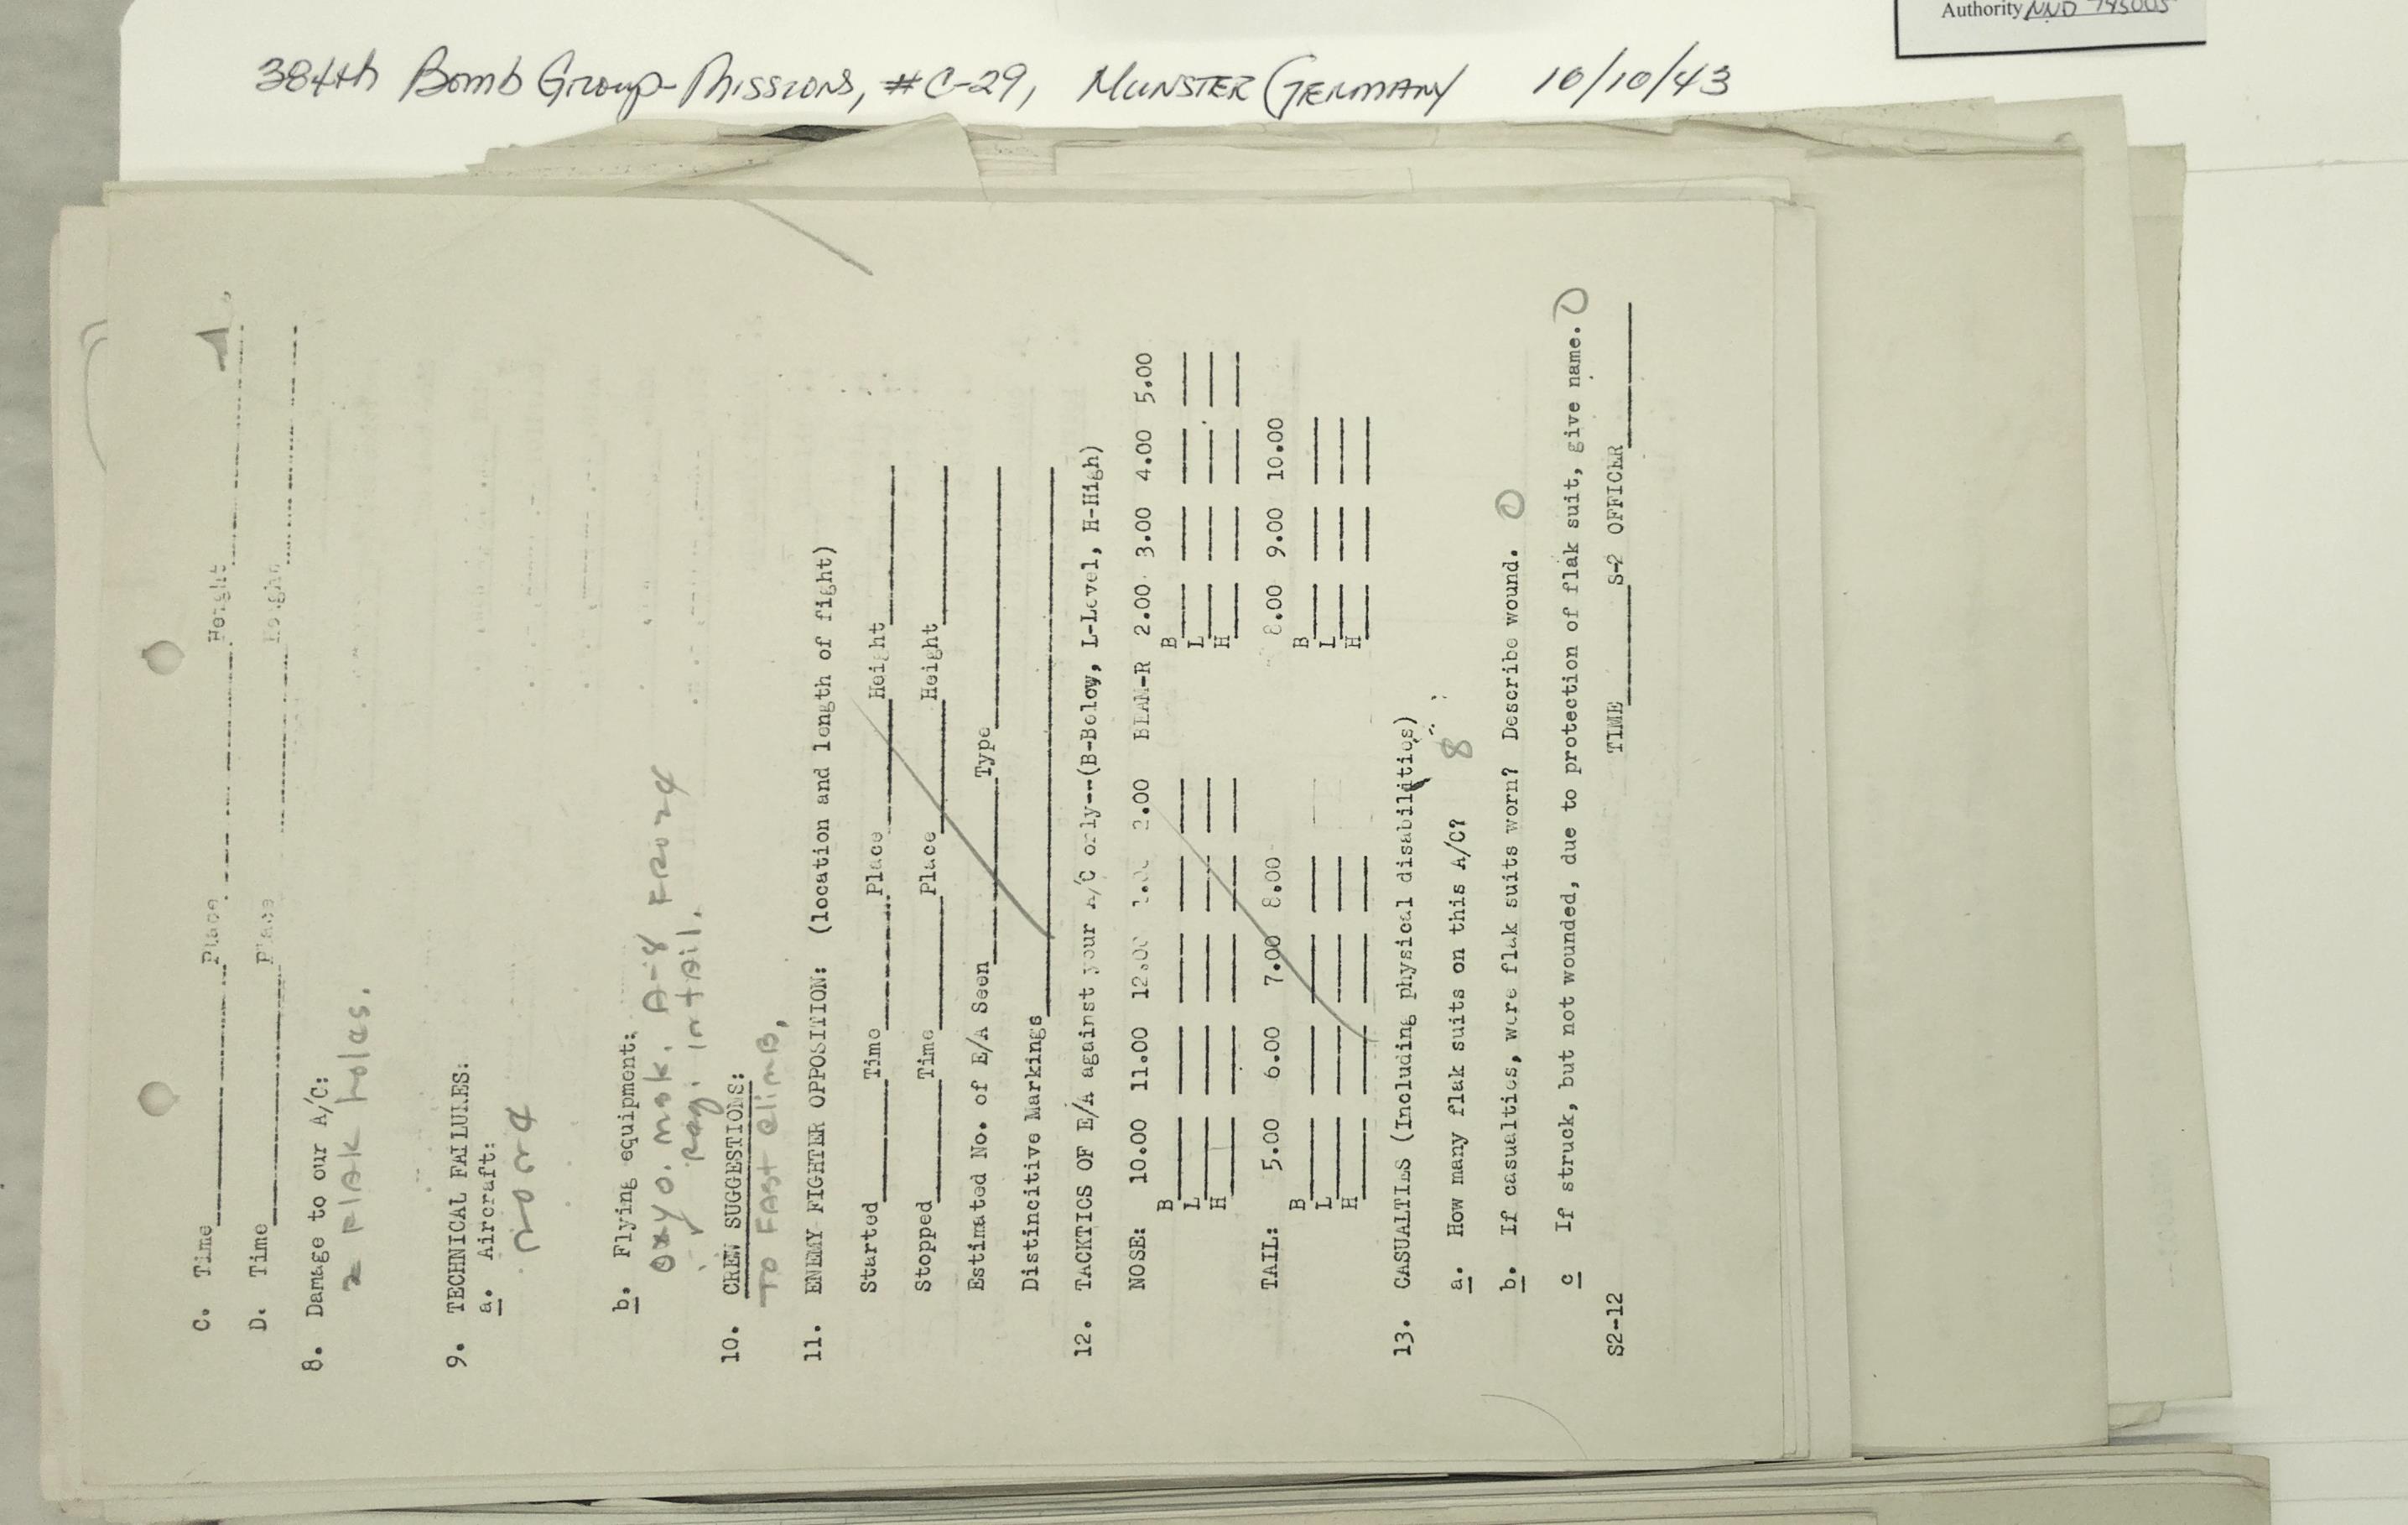 Authority NND 745005
384th Bomb Group-Missions, #C-29, MUNSTER GERMANY 10/10/43
C. Time Place Height
D. Time Place Height
8. Damage to our A/C:
2 FlAK holes.
9. TECHNICAL FAILURES:
a. Aircraft:
none
b. Flying equipment:
oxyo. mask. A-8 FROZE
Reg. in tAil.
10. CREW SUGGESTIONS:
TO FAST climB,
11. ENEMY FIGHTER OPPOSITION: (location and length of fight)
Started Time Place Height
Stopped Time Place Height
Estimated No. of E/A Seen Type
Distincitive Markings
12. TACKTICS OF E/A against your A/C only--(B-Below, L-Level, H-High)
NOSE: 10.00 11.00 12.00 1.00 2.00 BEAM-R 2.00 3.00 4.00 5.00
B B
L L
H H
TAIL: 5.00 6.00 7.00 8.00 8.00 9.00 10.00
B B
L L
H H
13. CASUALTIES (Including physical disabilities)
a. How many flak suits on this A/C? 8
b. If casualties, were flak suits worn? Describe wound. 0
c If struck, but not wounded, due to protection of flak suit, give name. 0
S2-12 TIME S-2 OFFICER